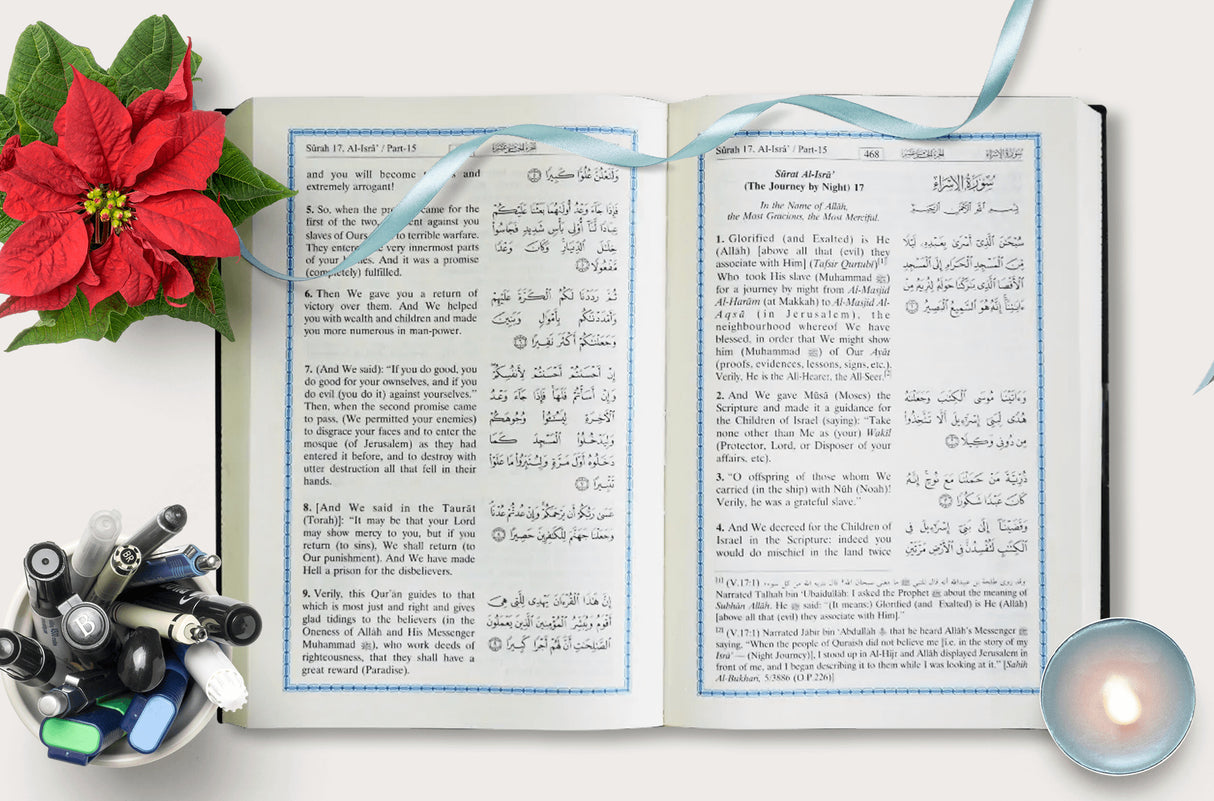 Sûrah 17. Al-Isrâ' / Part-15
468
الجزء الخامس عشر
سورة الإسراء
Sûrat Al-Isrâ'
(The Journey by Night) 17
In the Name of Allâh,
the Most Gracious, the Most Merciful.
1. Glorified (and Exalted) is He
(Allâh) [above all that (evil) they
associate with Him] (Tafsir Qurtubî)[1]
Who took His slave (Muhammad ﷺ)
for a journey by night from Al-Masjid
Al-Harâm (at Makkah) to Al-Masjid Al-
Aqsâ (in Jerusalem), the
neighbourhood whereof We have
blessed, in order that We might show
him (Muhammad ﷺ) of Our Ayât
(proofs, evidences, lessons, signs, etc.).
Verily, He is the All-Hearer, the All-Seer.[2]
2. And We gave Mûsâ (Moses) the
Scripture and made it a guidance for
the Children of Israel (saying): “Take
none other than Me as (your) Wakîl
(Protector, Lord, or Disposer of your
affairs, etc).
3. “O offspring of those whom We
carried (in the ship) with Nûh (Noah)!
Verily, he was a grateful slave.”
4. And We decreed for the Children of
Israel in the Scripture: indeed you
would do mischief in the land twice
سُورَةُ الإِسْرَاءِ
بِسْمِ اللَّهِ الرَّحْمَٰنِ الرَّحِيمِ
سُبْحَٰنَ ٱلَّذِىٓ أَسْرَىٰ بِعَبْدِهِۦ لَيْلًا
مِّنَ ٱلْمَسْجِدِ ٱلْحَرَامِ إِلَى ٱلْمَسْجِدِ
ٱلْأَقْصَا ٱلَّذِى بَٰرَكْنَا حَوْلَهُۥ لِنُرِيَهُۥ مِنْ
ءَايَٰتِنَآ إِنَّهُۥ هُوَ ٱلسَّمِيعُ ٱلْبَصِيرُ ١
وَءَاتَيْنَا مُوسَى ٱلْكِتَٰبَ وَجَعَلْنَٰهُ
هُدًى لِّبَنِىٓ إِسْرَٰٓءِيلَ أَلَّا تَتَّخِذُوا۟
مِن دُونِى وَكِيلًا ٢
ذُرِّيَّةَ مَنْ حَمَلْنَا مَعَ نُوحٍ إِنَّهُۥ
كَانَ عَبْدًا شَكُورًا ٣
وَقَضَيْنَآ إِلَىٰ بَنِىٓ إِسْرَٰٓءِيلَ فِى
ٱلْكِتَٰبِ لَتُفْسِدُنَّ فِى ٱلْأَرْضِ مَرَّتَيْنِ
[1] (V.17:1)
Narrated Talhah bin ‘Ubaidullâh: I asked the Prophet ﷺ about the meaning of
Subhân Allâh. He ﷺ said: “(It means:) Glorified (and Exalted) is He (Allâh)
[above all that (evil) they associate with Him].”
[2] (V.17:1) Narrated Jâbir bin ‘Abdullâh that he heard Allâh's Messenger ﷺ
saying, “When the people of Quraish did not believe me [i.e. in the story of my
Isrâ' — (Night Journey)], I stood up in Al-Hijr and Allâh displayed Jerusalem in
front of me, and I began describing it to them while I was looking at it.” [Sahih
Al-Bukhari, 5/3886 (O.P.226)]
Sûrah 17. Al-Isrâ' / Part-15
الجزء الخامس عشر
and you will become and
extremely arrogant!
5. So, when the came for the
first of the two, against you
slaves of Ours to terrible warfare.
They very innermost parts
of your And it was a promise
(completely) fulfilled.
6. Then We gave you a return of
victory over them. And We helped
you with wealth and children and made
you more numerous in man-power.
7. (And We said): “If you do good, you
do good for your ownselves, and if you
do evil (you do it) against yourselves.”
Then, when the second promise came
to pass, (We permitted your enemies)
to disgrace your faces and to enter the
mosque (of Jerusalem) as they had
entered it before, and to destroy with
utter destruction all that fell in their
hands.
8. [And We said in the Taurât
(Torah)]: “It may be that your Lord
may show mercy to you, but if you
return (to sins), We shall return (to
Our punishment). And We have made
Hell a prison for the disbelievers.
9. Verily, this Qur'ân guides to that
which is most just and right and gives
glad tidings to the believers (in the
Oneness of Allâh and His Messenger
Muhammad ﷺ), who work deeds of
righteousness, that they shall have a
great reward (Paradise).
وَلَتَعْلُنَّ عُلُوًّا كَبِيرًا ٤
فَإِذَا جَآءَ وَعْدُ أُولَىٰهُمَا بَعَثْنَا عَلَيْكُمْ
عِبَادًا لَّنَآ أُو۟لِى بَأْسٍ شَدِيدٍ فَجَاسُوا۟
خِلَٰلَ ٱلدِّيَارِ وَكَانَ وَعْدًا
مَّفْعُولًا ٥
ثُمَّ رَدَدْنَا لَكُمُ ٱلْكَرَّةَ عَلَيْهِمْ
وَأَمْدَدْنَٰكُم بِأَمْوَٰلٍ وَبَنِينَ
وَجَعَلْنَٰكُمْ أَكْثَرَ نَفِيرًا ٦
إِنْ أَحْسَنتُمْ أَحْسَنتُمْ لِأَنفُسِكُمْ
وَإِنْ أَسَأْتُمْ فَلَهَا فَإِذَا جَآءَ وَعْدُ
ٱلْءَاخِرَةِ لِيَسُۥٓـُٔوا۟ وُجُوهَكُمْ
وَلِيَدْخُلُوا۟ ٱلْمَسْجِدَ كَمَا
دَخَلُوهُ أَوَّلَ مَرَّةٍ وَلِيُتَبِّرُوا۟ مَا عَلَوْا۟
تَتْبِيرًا ٧
عَسَىٰ رَبُّكُمْ أَن يَرْحَمَكُمْ وَإِنْ عُدتُّمْ عُدْنَا
وَجَعَلْنَا جَهَنَّمَ لِلْكَٰفِرِينَ حَصِيرًا ٨
إِنَّ هَٰذَا ٱلْقُرْءَانَ يَهْدِى لِلَّتِى هِىَ
أَقْوَمُ وَيُبَشِّرُ ٱلْمُؤْمِنِينَ ٱلَّذِينَ يَعْمَلُونَ
ٱلصَّٰلِحَٰتِ أَنَّ لَهُمْ أَجْرًا كَبِيرًا ٩
BR
B